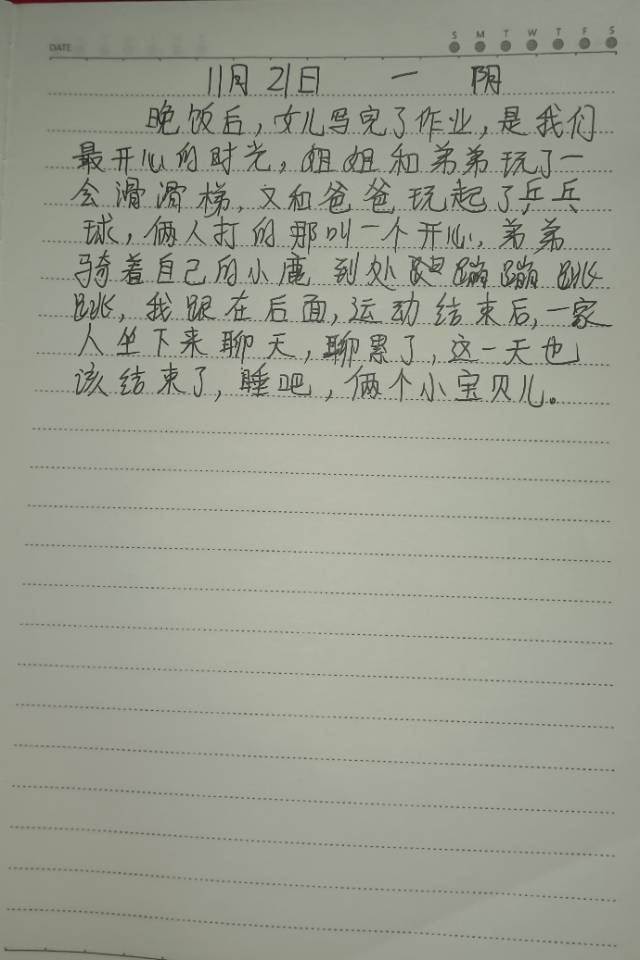 DATE
S M T W T F S
11月21日 一 阴
晚饭后，女儿写完了作业，是我们
最开心的时光，姐姐和弟弟玩了一
会滑滑梯，又和爸爸玩起了乒乓
球，俩人打的那叫一个开心，弟弟
骑着自己的小鹿到处蹦蹦跳
跳，我跟在后面，运动结束后，一家
人坐下来聊天，聊累了，这一天也
该结束了，睡吧，俩个小宝贝儿。